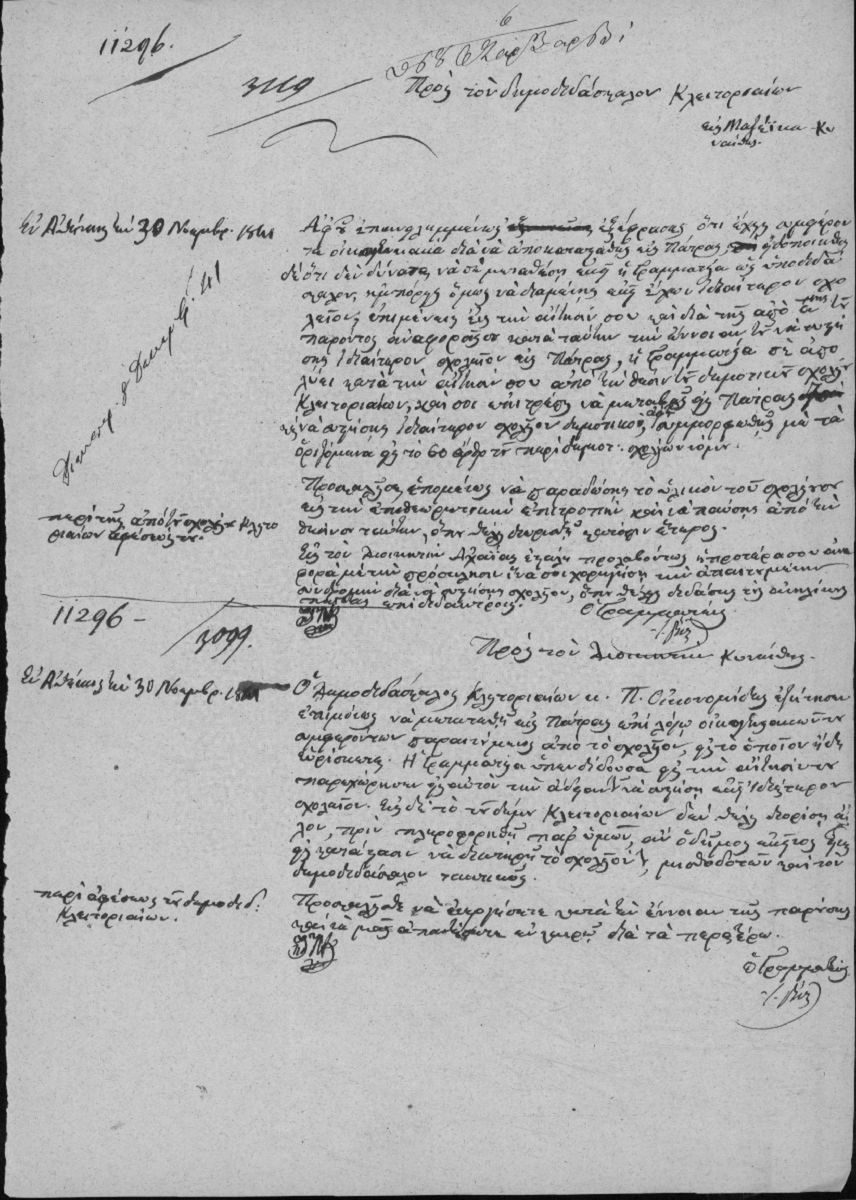 11296.
3119
Πρὸς τὸν δημοδιδάσκαλον Κλειτοριαίων
εἰς Μαζέϊκα Κυ
ναίθης.
Ἐν Ἀθήναις τῇ 30 Νοεμβρ. 1841
Ἀφοῦ ἐπανειλημμένως ἐξέφρασες, ὅτι ἔχεις συμφέρον
τα οἰκογενειακὰ διὰ νὰ ἀποκατασταθῇς εἰς Πάτρας,
δὲ ὅτι δὲν δύναται νὰ σὲ μεταθέσῃ ἐκεῖ ἡ Γραμματεία ὡς ὑποδιδά
σκαλον, ἠμπόρεις ὅμως νὰ διαμένῃς ἐκεῖ ἔχων ἰδιαίτερον σχο
λεῖον, ἐπιμένεις εἰς τὴν αἴτησίν σου καὶ διὰ τῆς ἀπὸ
παρόντος ἀναφορᾶς σου κατὰ ταύτην τὴν ἔννοιαν τοῦ νὰ συστή
σῃς ἰδιαίτερον σχολεῖον εἰς Πάτρας, ἡ Γραμματεία σὲ ἀπο
λύει κατὰ τὴν αἴτησίν σου ἀπὸ τὴν θέσιν τοῦ δημοτικοῦ σχολείου
Κλειτοριαίων, καὶ σοὶ ἐπιτρέπει νὰ μεταβῇς εἰς Πάτρας
νὰ συστήσῃς ἰδιαίτερον σχολεῖον δημοτικὸν συμμορφωθεὶς μὲ τὰ
ὁριζόμενα εἰς τὸ 60 ἄρθρ. τοῦ περὶ δημοτ. σχολείων νόμου.
Προσκαλεῖσαι ἑπομένως νὰ παραδώσῃς τὸ ὑλικὸν τοῦ σχολείου
εἰς τὴν ἐπιθεωρητικὴν ἐπιτροπὴν καὶ νὰ παύσῃς ἀπὸ τὴν
θέσιν ταύτην, ὅπου θέλει διορισθῆ κατόπιν ἕτερος.
Εἰς τὸν Διοικητὴν Ἀχαΐας ἐστάλη προλαβόντως ἡ προτέρα σου ἀνα
φορὰ μὲ τὴν πρόσκλησιν ἵνα σοὶ χορηγήσῃ τὴν ἀπαιτουμένην
διὰ νὰ συστήσῃς σχολεῖον, ὅπου θέλεις διδάσκει
παῖδας ἐπὶ διδάκτροις.
Ὁ Γραμματεύς
περὶ τῆς ἀπὸ τοῦ σχολείου Κλειτο
ριαίων ἀφέσεώς του.
11296 –
3099.
Πρὸς τὸν Διοικητὴν Κυναίθης.
Ἐν Ἀθήναις τῇ 30 Νοεμβρ. 1841
Ὁ δημοδιδάσκαλος Κλειτοριαίων κ. Π. Οἰκονομίδης ἐζήτησεν
ἐπιμόνως νὰ μετατεθῇ εἰς Πάτρας ἐπὶ λόγῳ οἰκογενειακῶν του
συμφερόντων παραιτούμενος ἀπὸ τὸ σχολεῖον, εἰς τὸ ὁποῖον ἤδη
εὑρίσκεται. Ἡ Γραμματεία ὑπενδίδουσα εἰς τὴν αἴτησίν του
παρεχώρησεν εἰς αὐτὸν τὴν ἄδειαν τοῦ νὰ συστήσῃ ἐκεῖ ἰδιαίτερον
σχολεῖον. Εἰς δὲ τὸ τοῦ δήμου Κλειτοριαίων δὲν θέλει διορίσει ἄλ
λον, πρὶν πληροφορηθῇ παρ' ὑμῶν, ἂν ὁ δῆμος ἐκεῖνος ἦναι
εἰς κατάστασιν νὰ διατηρῇ τὸ σχολεῖόν του, μισθοδοτῶν καὶ τὸν
δημοδιδάσκαλον τακτικῶς.
Προσκαλεῖσθε νὰ ἐνεργήσετε κατὰ τὴν ἔννοιαν τῆς παρούσης
καὶ νὰ μᾶς ἀπαντήσετε ἐν καιρῷ διὰ τὰ περαιτέρω.
Ὁ Γραμματεύς
περὶ ἀφέσεως τοῦ δημοδιδ.
Κλειτοριαίων.